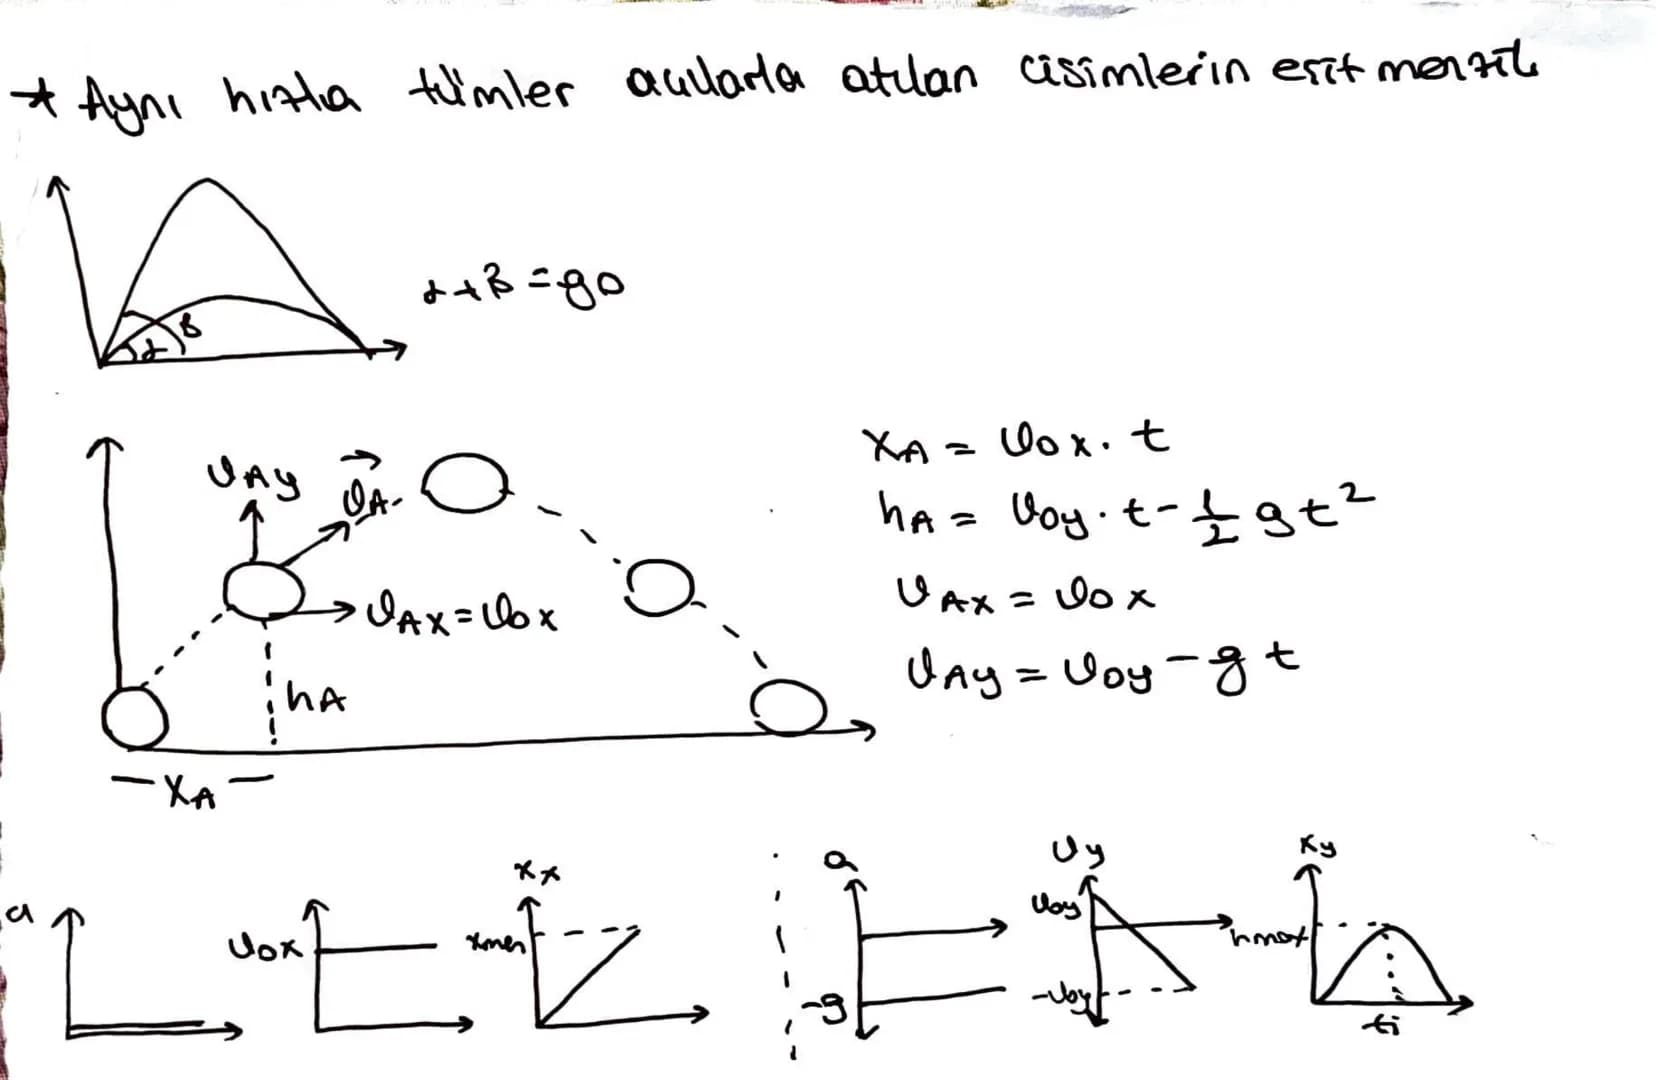 * Aynı hızla tümler açılarla atılan cisimlerin eşit menzil
α+β=90
β
α
VAy
VA
VAX=V0x
hA
XA
XA = V0x.t
hA = V0y.t-1/2 gt²
VAX = V0x
VAy = V0y-gt
a
V0x
Xx
Xmen
a
-g
Vy
V0y
-V0y
Xy
hmax
ti